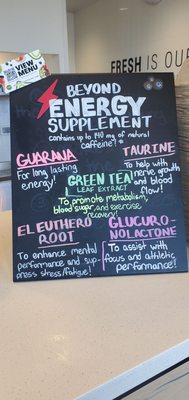 VIEW
MENU
FRESH IS OUR
BEYOND
ENERGY
SUPPLEMENT
contains up to 140 mg of natural
caffeine!*
GUARANA
For long lasting
energy!
TAURINE
To help with
nerve growth
and blood
flow!
GREEN TEA
LEAF EXTRACT
To promote metabolism,
blood sugar, and exercise
recovery!
ELEUTHERO
ROOT
To enhance mental
performance and sup-
press stress/fatigue!
GLUCURO-
NOLACTONE
To assist with
focus and athletic
performance!